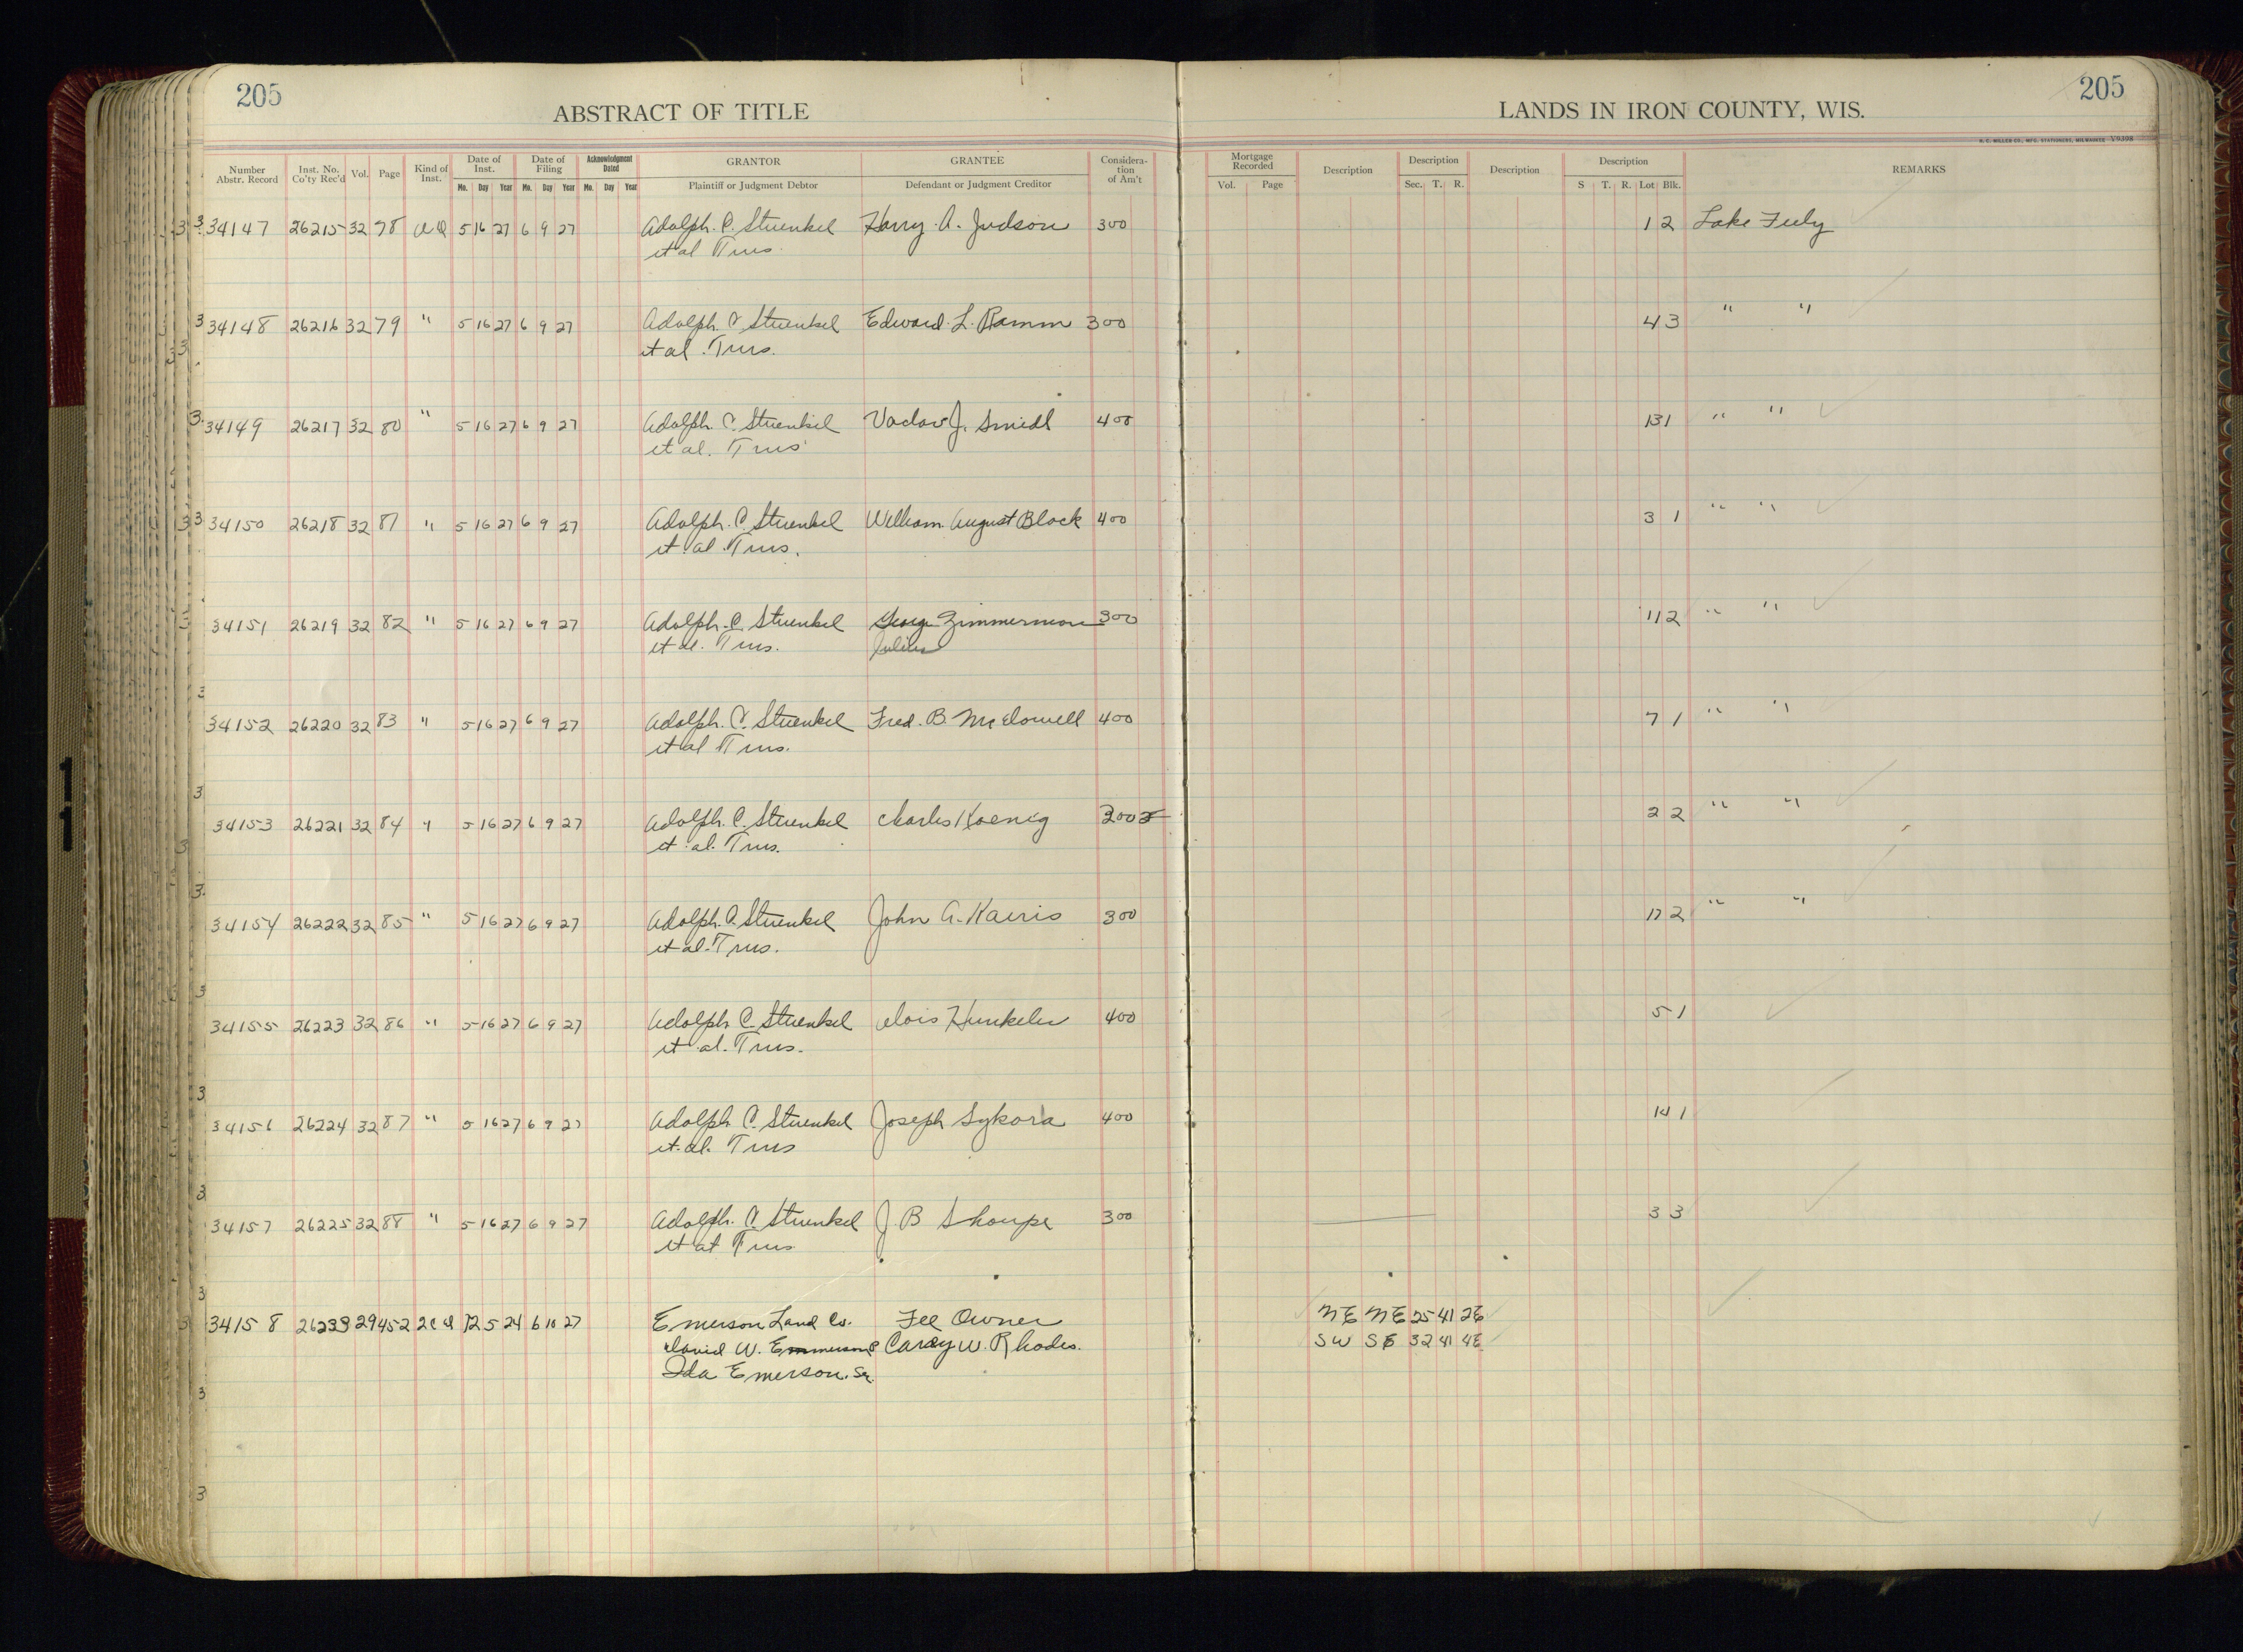 205
205
ABSTRACT OF TITLE
LANDS IN IRON COUNTY, WIS.
H. C. MILLER CO., MFG. STATIONERS, MILWAUKEE V9398
Number Abstr. Record Inst. No. Co'ty Rec'd Vol. Page Kind of Inst. Date of Inst. Date of Filing Acknowledgment Dated GRANTOR GRANTEE Considera-tion of Am't Mortgage Recorded Description Description Description Description REMARKS
Mo. Day Year Mo. Day Year Mo. Day Year Plaintiff or Judgment Debtor Defendant or Judgment Creditor Vol. Page Sec. T. R. S T. R. Lot Blk.
34147 26215 32 78 5 16 27 6 9 27 Adolph. C. Stuenkel Harry. A. Judson 300 1 2 Lake
et al Trus.
34148 26216 32 79 " 5 16 27 6 9 27 Adolph C Stuenkel Edward. L. Ramm 300 4 3 " "
et al. Trus.
34149 26217 32 80 " 5 16 27 6 9 27 Adolph. C. Stuenkel Vaclav J. Smidl 400 13 1 " "
et al. Trus
34150 26218 32 81 " 5 16 27 6 9 27 Adolph. C. Stuenkel William August Block 400 3 1 " "
et al. Trus.
34151 26219 32 82 " 5 16 27 6 9 27 Adolph. C. Stuenkel George Zimmerman 300 11 2 " "
et al. Trus. Julius
34152 26220 32 83 " 5 16 27 6 9 27 Adolph. C. Stuenkel Fred. B. McDowell 400 7 1 " "
et al Trus.
34153 26221 32 84 " 5 16 27 6 9 27 Adolph. C. Stuenkel Charles Koenig 300 2 2 " "
et al. Trus.
34154 26222 32 85 " 5 16 27 6 9 27 Adolph. C. Stuenkel John A. Kairis 300 2 " "
et al. Trus.
34155 26223 32 86 " 5 16 27 6 9 27 Adolph C. Stuenkel Alois Hunkeler 400 5 1
et al. Trus.
34156 26224 32 87 " 5 16 27 6 9 27 Adolph C. Stuenkel Joseph Sykora 400 1
et al. Trus
34157 26225 32 88 " 5 16 27 6 9 27 Adolph. C. Stuenkel J. B 300 3 3
et al Trus
34158 26239 29 452 12 5 24 6 10 27 Emerson Land Co. Fee Owner NE NE 25 41 2E
David W. Emmerson Carey W. Rhodes. SW SE 32 41 4E
Ida Emerson. Sr.